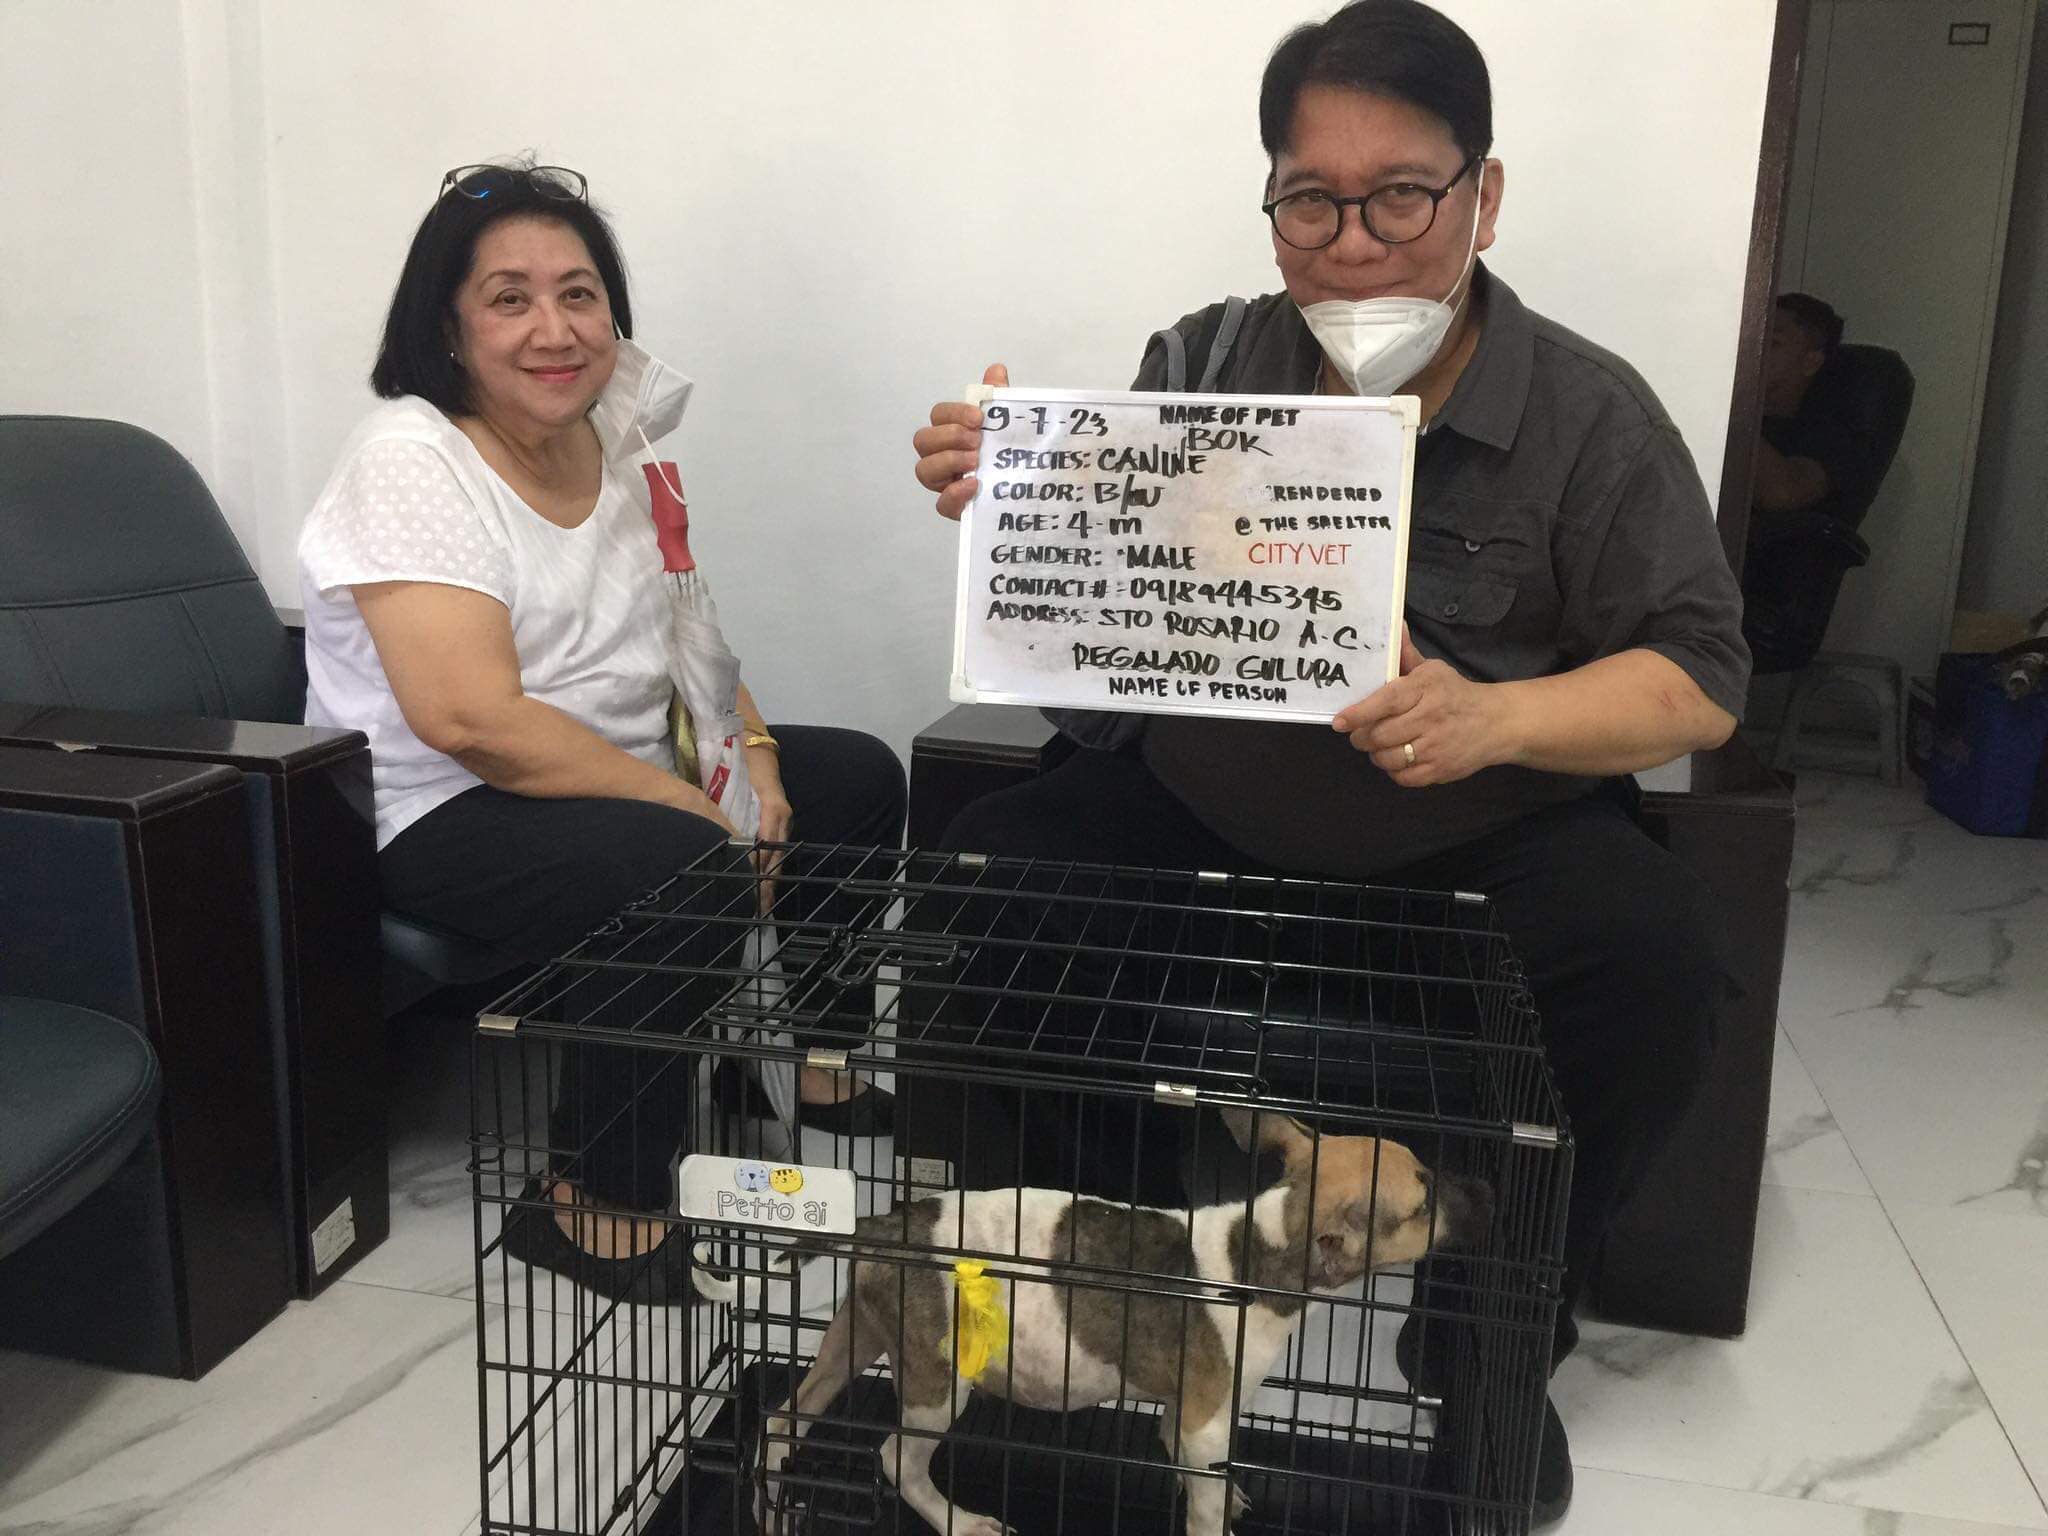 9-7-23 NAME OF PET
BOK
SPECIES: CANINE
COLOR: B/W RENDERED
AGE: 4-m @ THE SHELTER
GENDER: MALE CITY VET
CONTACT #: 09189445345
ADDRESS: STO ROSARIO A.C.
REGALADO GULURA
NAME OF PERSON
Petto ai